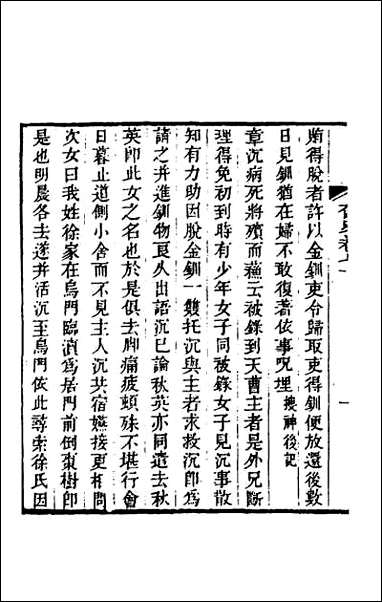 賂得脫者許以金釧吏令歸取吏得釧便放還後數
日見釧猶在婦不敢復著依事呪埋 搜神後記
章沉病死將殯而穌云被錄到天曹主者是外兄斷
理得免初到時有少年女子同被錄女子見沉事散
知有力助因脫金釧一雙托沉與主者求救沉即為
請之并進釧物良久出語沉已論秋英亦同遣去秋
英即此女之名也於是俱去腳痛疲頓殊不堪行會
日暮止道側小舍而不見主人沉共宿嬿接更相問
次女曰我姓徐家在烏門臨瀆為居門前倒棗樹即
是也明晨各去遂并活沉至烏門依此尋索徐氏因